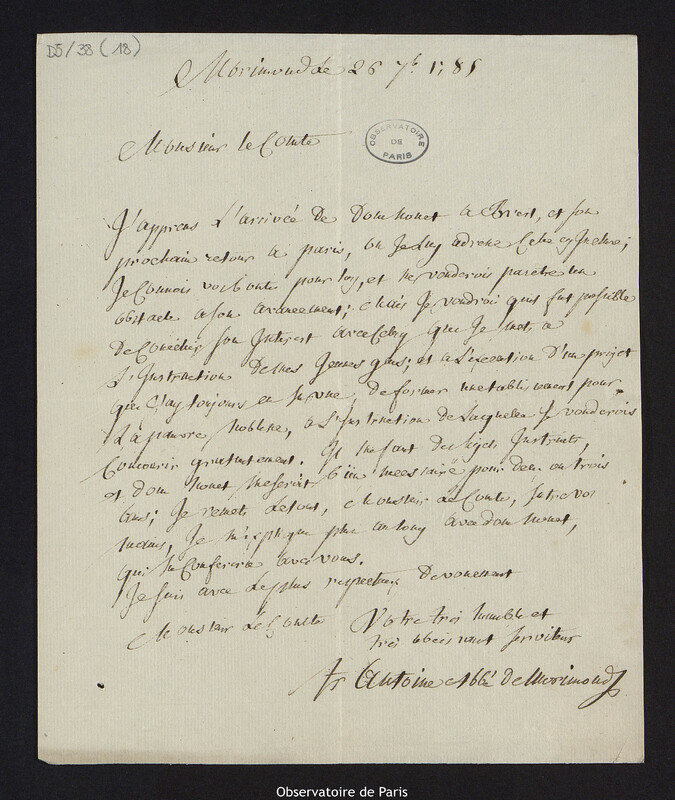 D5/38 (18)
Morimond le 26 7b 1785
OBSERVATOIRE DE PARIS
Monsieur le Comte
J'apprens l'arrivée de Dom nouet a Brest, et son
prochain retour a paris, ou Je luy adresse cy Incluse;
Je Connois vos bontés pour luy, et ne vouderois paretre un
obstacle a son avancement; Mais Je voudroi quil fut possible
de Concilier son Interest avec celuy que Je met a
L'Instruction de mes Jeunes gens; et a L'execution d'un projet
que J'ay toujours en vue, de former un etablissement pour
La pauvre noblesse, a L'Instruction de Laquelle Je vouderois
Concourir gratuitement. Il me faut des sujets Instruits,
et dom nouet me seroit bien necessaire pour deux ou trois
ans; Je remets le tout, Monsieur le Comte, entre vos
mains, Je m'explique plus au long avec dom nouet,
qui en Conferera avec vous.
Je suis avec le plus respectueux Devouement
Monsieur le Comte
Votre très humble et
très obeissant serviteur
fr Antoine Abbé de Morimond
Observatoire de Paris